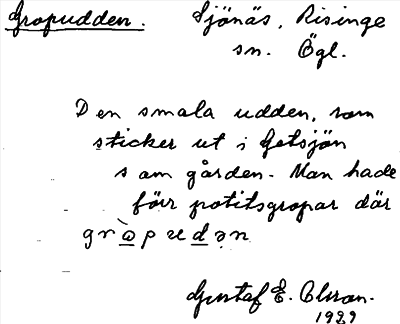 Gropudden. Sjönäs, Risinge
sn. Ögl.
Den smala udden, som
sticker ut i Getsjön
s om gården. Man hade
förr potitsgropar där
Gustaf E. Olsson.
1929